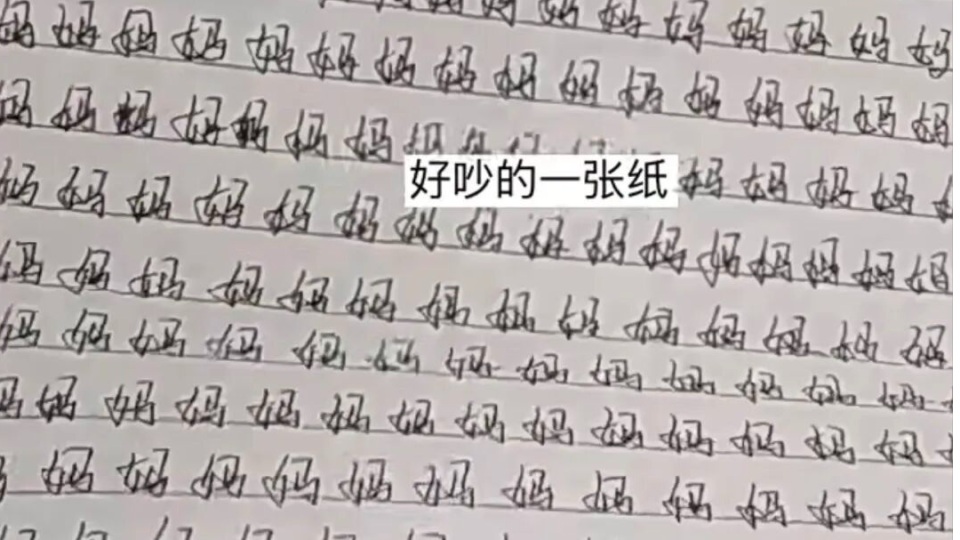 妈 妈 妈 妈 妈 妈
妈 妈 妈 妈 妈 妈 妈 妈 妈 妈 妈 妈 妈 妈 妈 妈
妈 妈 妈 妈 妈 妈 妈 妈 妈 妈 妈 妈
好吵的一张纸
妈 妈 妈 妈 妈 妈 妈 妈 妈 妈 妈 妈 妈 妈 妈
妈 妈 妈 妈 妈 妈 妈 妈 妈 妈 妈 妈 妈 妈
妈 妈 妈 妈 妈 妈 妈 妈 妈 妈 妈 妈 妈
妈 妈 妈 妈 妈 妈 妈 妈 妈 妈 妈 妈 妈
妈 妈 妈 妈 妈 妈 妈 妈 妈 妈 妈 妈